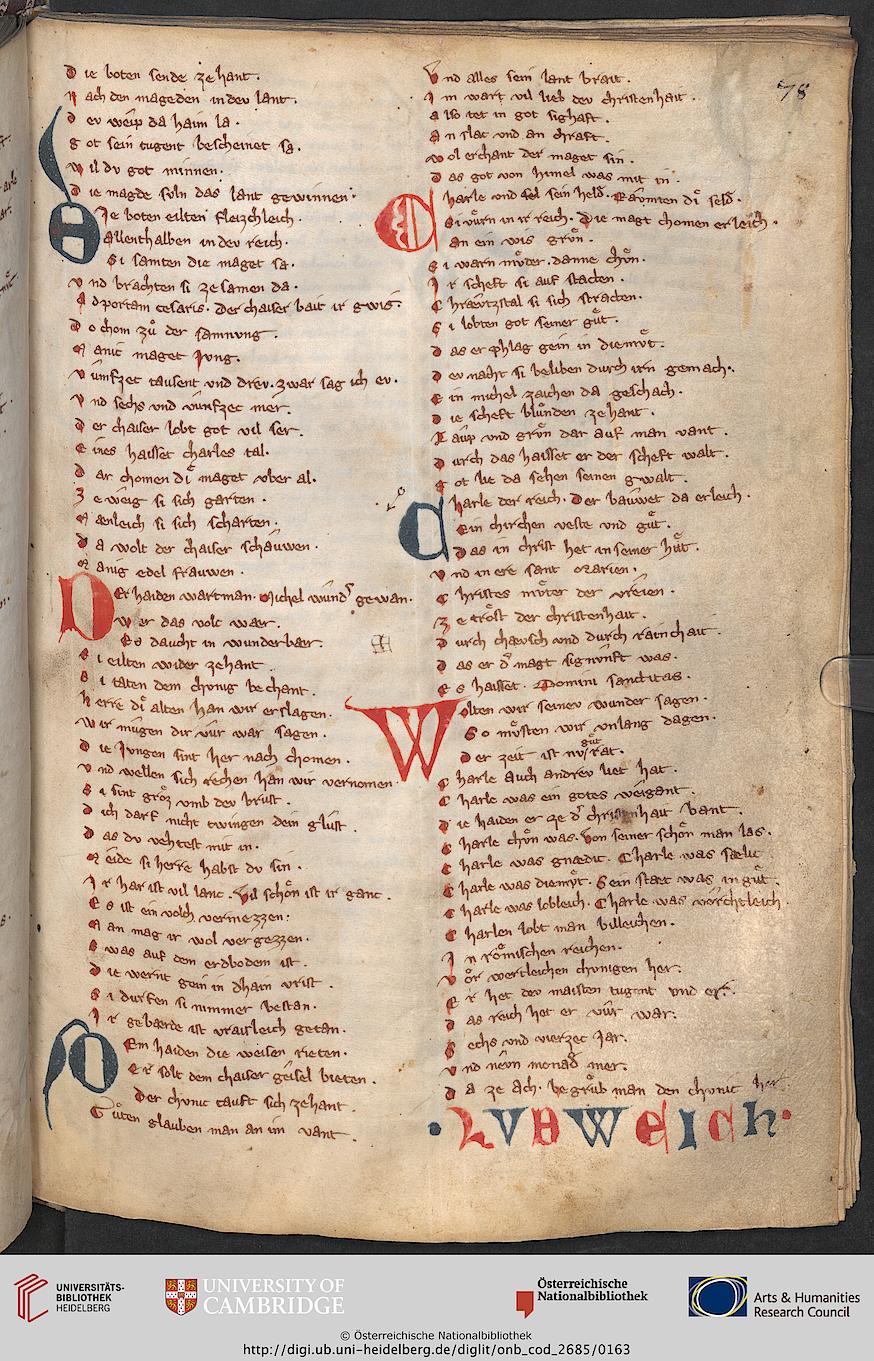 78
Die boten sende zehant.
Nach den mageden in dev lant.
der weip da haim la.
got sein tugent bescheinet sa.
wil dv got minnen.
die magde suln das lant gewinnen.
Die boten eilten fleizchleich.
Allenthalben in dev reich.
Si samten die maget sa.
vnd brachten si zesamen da.
Ad portam cesaris. der chaiser bait ir gwis.
Do chom zuͦ der samnvng.
Manic maget Jvng.
vumfzec tausent vnd drev. zwar sag ich ev.
Vnd sechs vnd vunfzec mer.
Der chaiser lobt got vil ser.
Eines haisset charles tal.
Dar chomen di maget vber al.
Zeweig si sich garten.
Mænleich si sich scharten.
Da wolt der chaiser schauwen.
Manig edel frauwen.
Der haiden wartman. Michel wund gewan.
wer das volc wær.
Es daucht in wunderbær.
Si eilten wider zehant.
Si taten dem chvnig bechant.
herre die alten han wir erslagen.
Wir mugen dir vur war sagen.
Die Jvngen sint her nach chomen.
vnd wellen sich rechen han wir vernomen
Si sint groz vmb dev brust.
Dich darf nicht twingen dein glust.
Das dv vehtest mit in.
Meide si herre habst dv sin.
Ir har ist vil lanc. Vil schoͤn ist ir ganc.
Es ist ein volch vermezzen.
Man mag ir wol vergezzen.
Swas auf dem erdbodem ist.
Die wernt gein in dhain vrist.
Si durfen si nimmer bestan.
Ir gebærde ist vraisleich getan.
Dem haiden die weisen rieten.
Er solt dem chaiser geisel bieten.
Der chvnic tauft sich zehant.
Guͦten glauben man an im vant.
Vnd alles sein lant brait.
Im wart vil lieb dev christenhait.
also tet in got sighaft.
An slac vnd an chraft.
wol erchant der maget sin.
Das got von himel was mit in.
Charle vnd sel sein held. Raumten di seld.
Si vuͦrn in ir reich. Die magt chomen erleich.
an ein wis gruͤn.
Si warn muͤder. danne choͤn.
Ir scheft si auf stacten.
Chraeutzstal si sich stracten.
Si lobten got seiner guͤt.
Das er phlag gein in diemuͤt.
Dev nacht si beliben durch irn gemach.
Ein michel zaichen da geschach.
Die scheft bluͦnden zehant.
Laup vnd gruͤn dar auf man vant.
Durch das haisset er der scheft walt.
Got lie da sehen seinen gwalt.
Charle der reich. Der bauwet da erleich.
Ein chirchen veste vnd guͤt.
Das in christ het in seiner huͤt.
vnd in ere sant Marien.
Christes muͤter der vreien.
Ze troͤst der christenhait.
Durch chævsch vnd durch rainchait.
Das er der magt signunft was.
Es haisset. Domini sanctitas.
Wolten wir seinev wunder sagen.
So muͤsten wir vnlang dagen.
Der zeit ist nv guͤt rat.
Charle auch andrev liet hat.
Charle was ein gotes weigant.
Die haiden er ze der christenhait vant.
Charle choͤn was. Von seiner schoͤn man las.
Charle was genædic. Charle was sælic.
Charle was diemuͤt. Sein stæt was in guͤt.
Charle was lobleich. Charle was vorchtleich.
Charlen lobt man billeichen.
In roͤmischen reichen.
Voͤr wertleichen chvnigen her.
Er het dev maisten tugent vnd er.
Das reich het er vuͤr war.
Sechs vnd vierzec Jar.
vnd nevn monad mer.
Da ze ach. begruͦb man den chvnic her.
·LVDWEICH·
UNIVERSITÄTS-
BIBLIOTHEK
HEIDELBERG
UNIVERSITY OF
CAMBRIDGE
Österreichische
Nationalbibliothek
Arts & Humanities
Research Council
© Österreichische Nationalbibliothek
http://digi.ub.uni-heidelberg.de/diglit/onb_cod_2685/0163